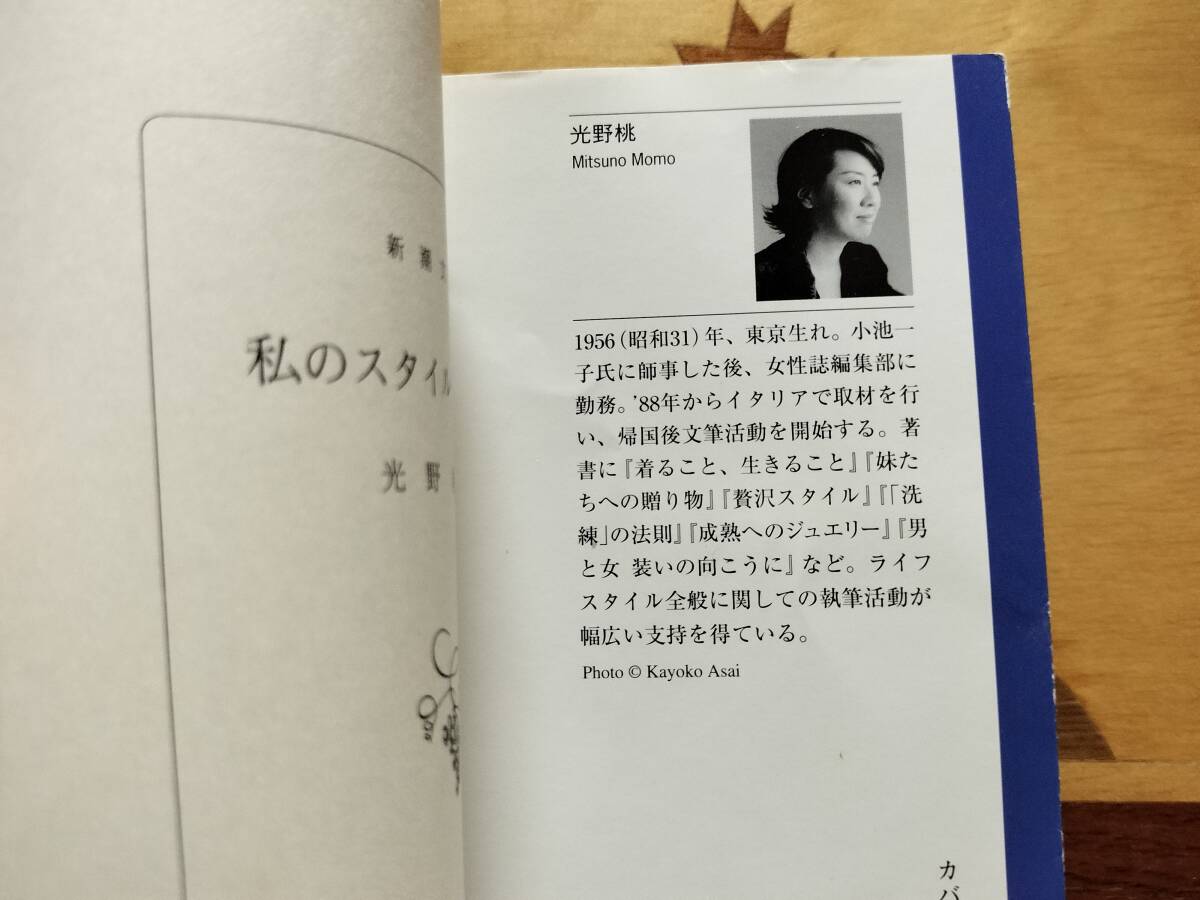 新潮
私のスタイル
光野
光野桃
Mitsuno Momo
1956(昭和31)年、東京生れ。小池一
子氏に師事した後、女性誌編集部に
勤務。'88年からイタリアで取材を行
い、帰国後文筆活動を開始する。著
書に『着ること、生きること』『妹た
ちへの贈り物』『贅沢スタイル』『「洗
練」の法則』『成熟へのジュエリー』『男
と女 装いの向こうに』など。ライフ
スタイル全般に関しての執筆活動が
幅広い支持を得ている。
Photo © Kayoko Asai
カバ